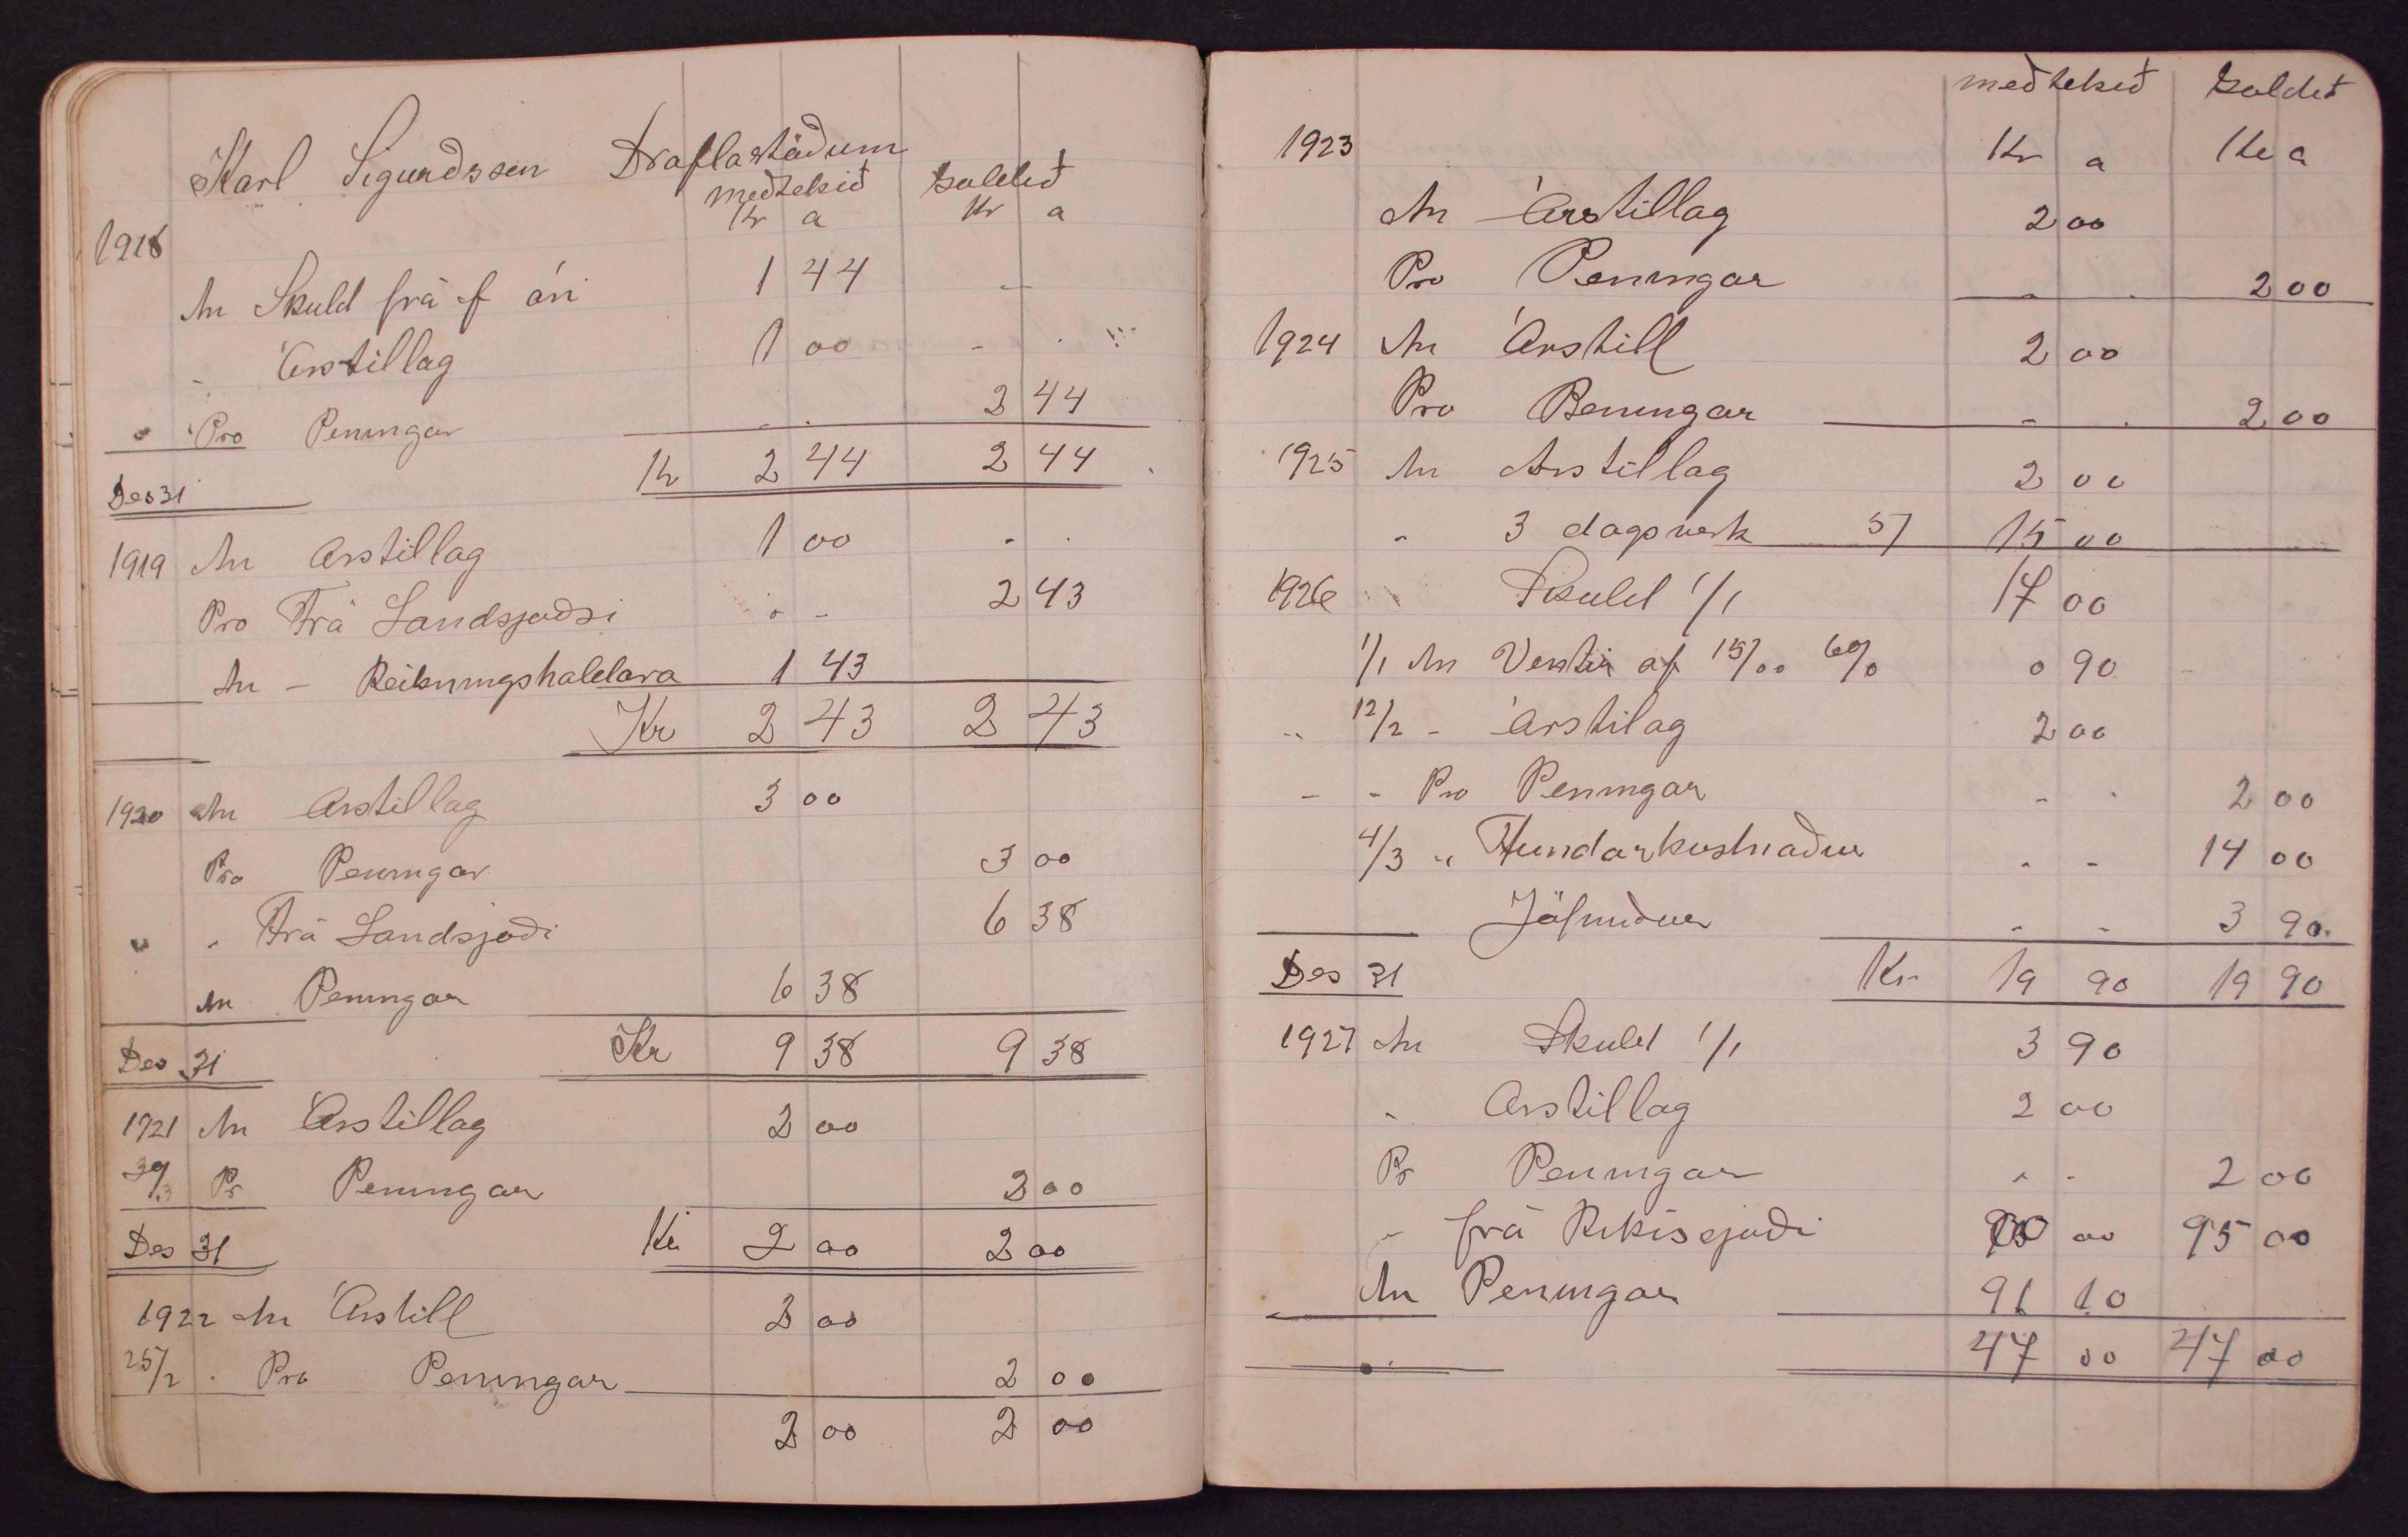 Karl Sigurdsson Draflastöðum
meðtekið goldið
Kr a Kr a
1918
An Skuld frá f ári 1 44 -
- Árstillag 1 00 - .
" Pro Peningar - . 2 44
Des 31 Kr 2 44 2 44
1919 An Arstillag 1 00 - .
Pro Frá Landsjóði " - 2 43
An - Reikningshaldara 1 43
Kr 2 43 2 43
1920 An Arstillag 3 00
Pro Peningar 3 00
" " Frá Landsjóði 6 38
An Peningar 6 38
Des 31 Kr 9 38 9 38
1921 An Árstillag 2 00
Pr Peningar 2 00
Des 31 Kr 2 00 2 00
1922 An Árstill 2 00
25/2 . Pro Peningar 2 00
2 00 2 00
meðtekið goldið
1923 Kr a Kr a
An Árstillag 2 00
Pro Peningar - . 2 00
1924 An Árstill 2 00
Pro Peningar - . 2 00
1925 An Arstillag 2 00
" 3 dagsverk 5/ 15 00
1926 " Skuld 1/1 17 00
1/1 An Vextir af 15/00 6% 0 90
" 12/2 - Árstilag 2 00
- - Pro Peningar - . 2 00
4/3 " Hundarkostnaður - - 14 00
Jöfnuður - - 3 90
Des 31 Kr 19 90 19 90
1927 An Skuld 1/1 3 90
" Arstillag 2 00
Pr Peningar " - 2 00
- frá Rikissjoði 00 95 00
An Peningar 91 10
47 00 47 00